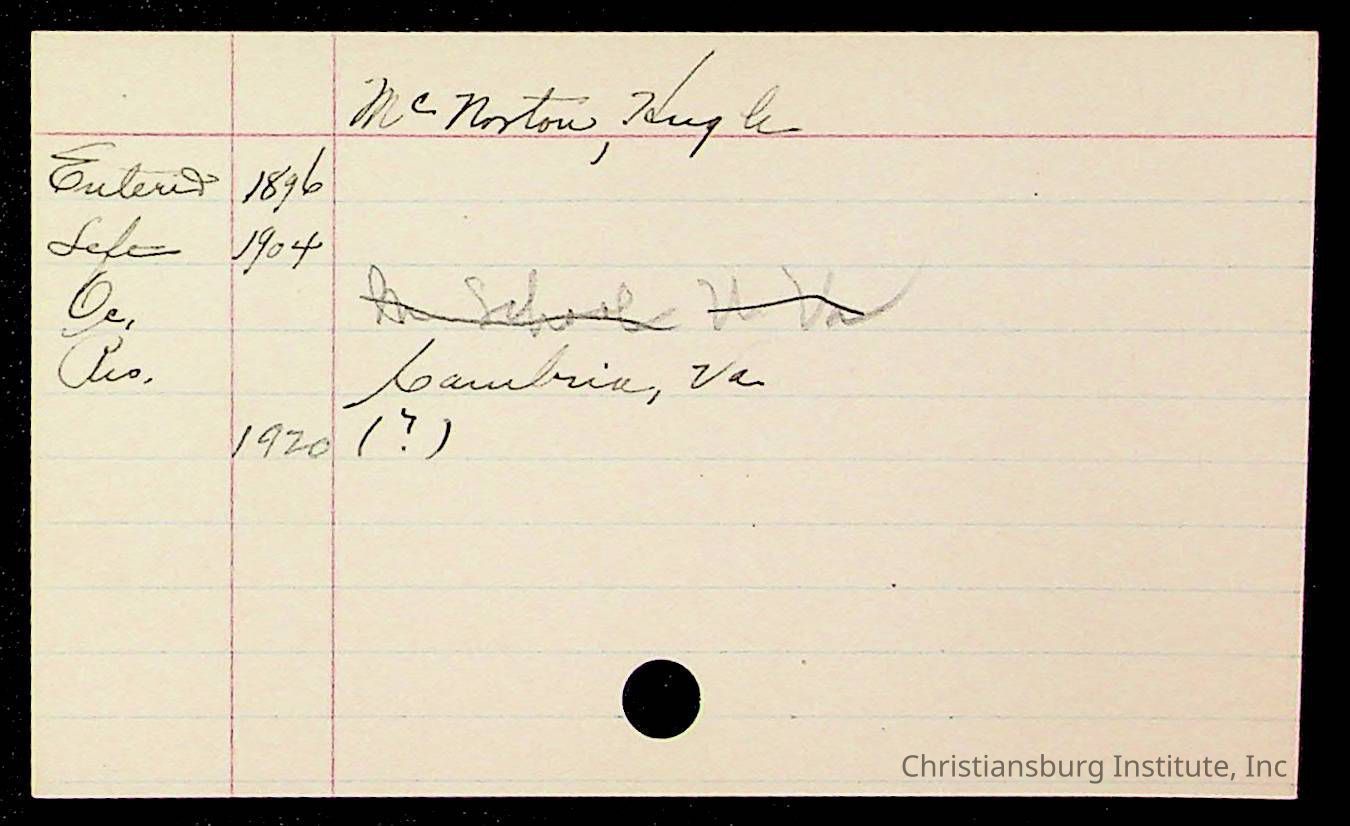 McNorton, Hugh
Entered 1896
Left 1904
Oc. In School W Va
Res. Cambria, Va
1920 (?)
Christiansburg Institute, Inc